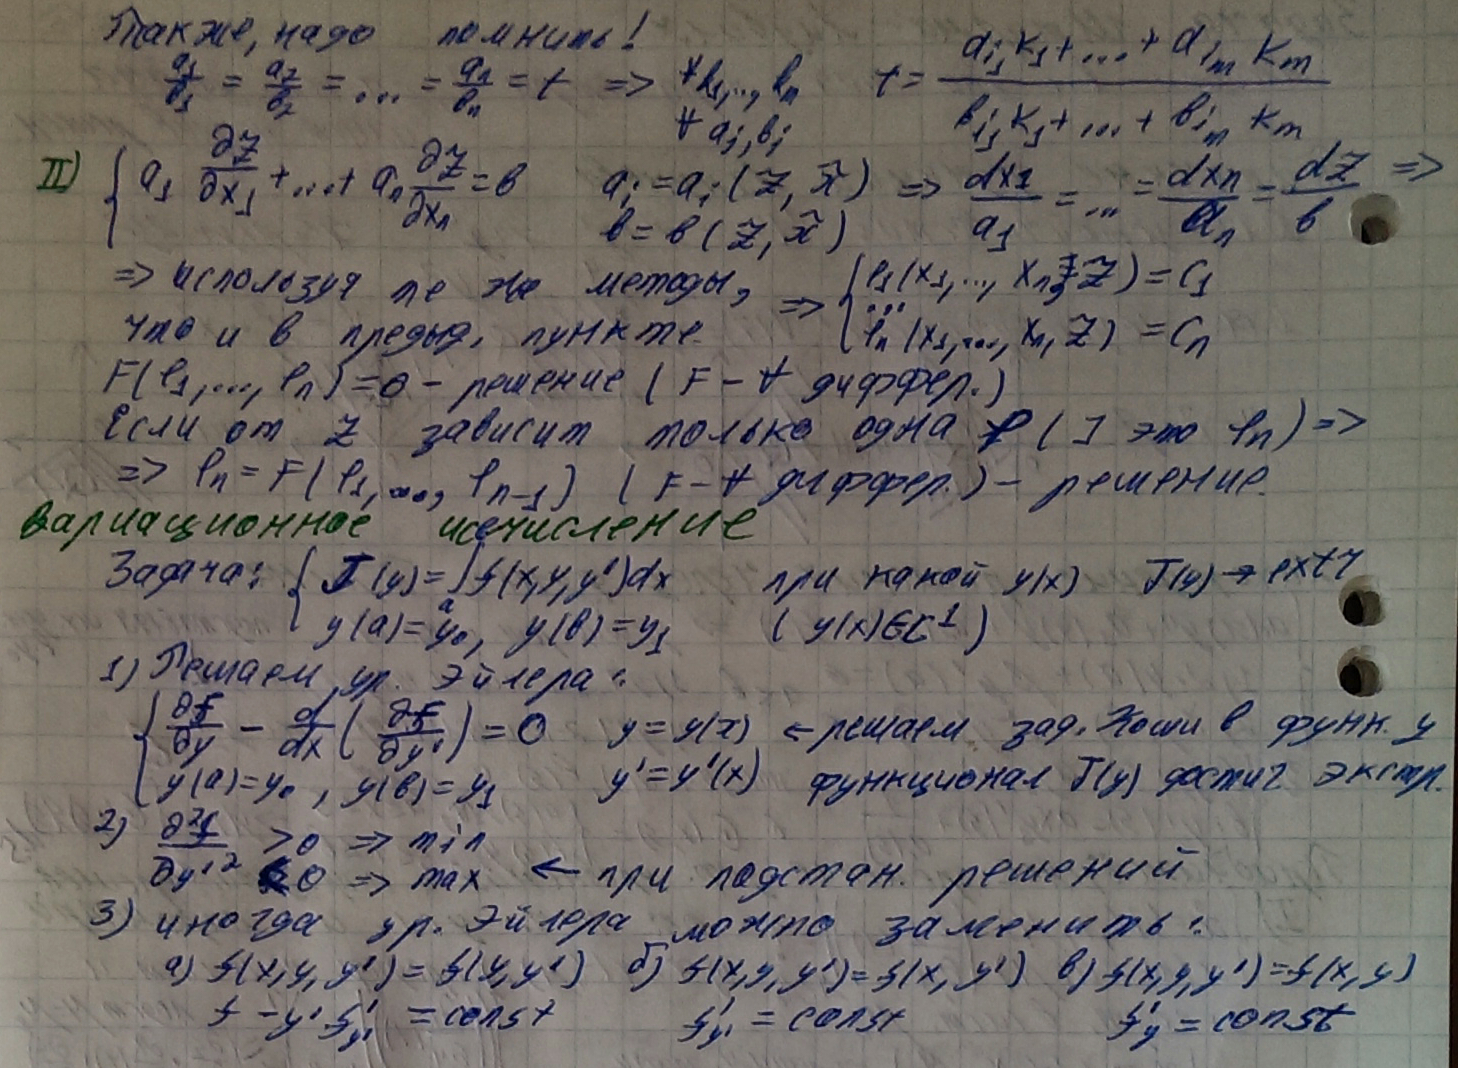 Также, надо помнить!
a₁/b₁ = a₂/b₂ = ... = aₙ/bₙ = t => ∀k₁,..,kₙ ∀aᵢ,bᵢ t = (aᵢ₁k₁+...+aᵢₘkₘ)/(bᵢ₁k₁+...+bᵢₘkₘ)
II) { a₁ ∂z/∂x₁ +...+ aₙ ∂z/∂xₙ = b aᵢ = aᵢ(z, x̃) b = b(z, x̃) => dx₁/a₁ = ... = dxₙ/aₙ = dz/b =>
=> используя те же методы, => { φ₁(x₁,..., xₙ, z) = C₁
что и в предыд. пункте. ... φₙ(x₁,..., xₙ, z) = Cₙ
F(φ₁,..., φₙ) = 0 - решение (F - ∀ диффер.)
Если от z зависит только одна φ (] это φₙ) =>
=> φₙ = F(φ₁,..., φₙ₋₁) (F - ∀ диффер.) - решение.
Вариационное исчисление
Задача: { J(y) = ∫ₐ f(x,y,y')dx при какой y(x) J(y) → extr
y(a) = y₀, y(b) = y₁ (y(x)∈C¹)
1) Решаем ур. Эйлера:
{ ∂f/∂y - d/dx (∂f/∂y') = 0 y = y(x) ← решаем зад. Коши в функ. y
y(a)=y₀, y(b)=y₁ y' = y'(x) функционал J(y) достиг экстр.
2) ∂²f/∂y'² >0 => min
<0 => max ← при подстан. решений
3) иногда ур. Эйлера можно заменить:
а) f(x,y,y') = f(y,y') б) f(x,y,y') = f(x,y') в) f(x,y,y') = f(x,y)
f - y'f'y' = const f'y' = const f'y = const